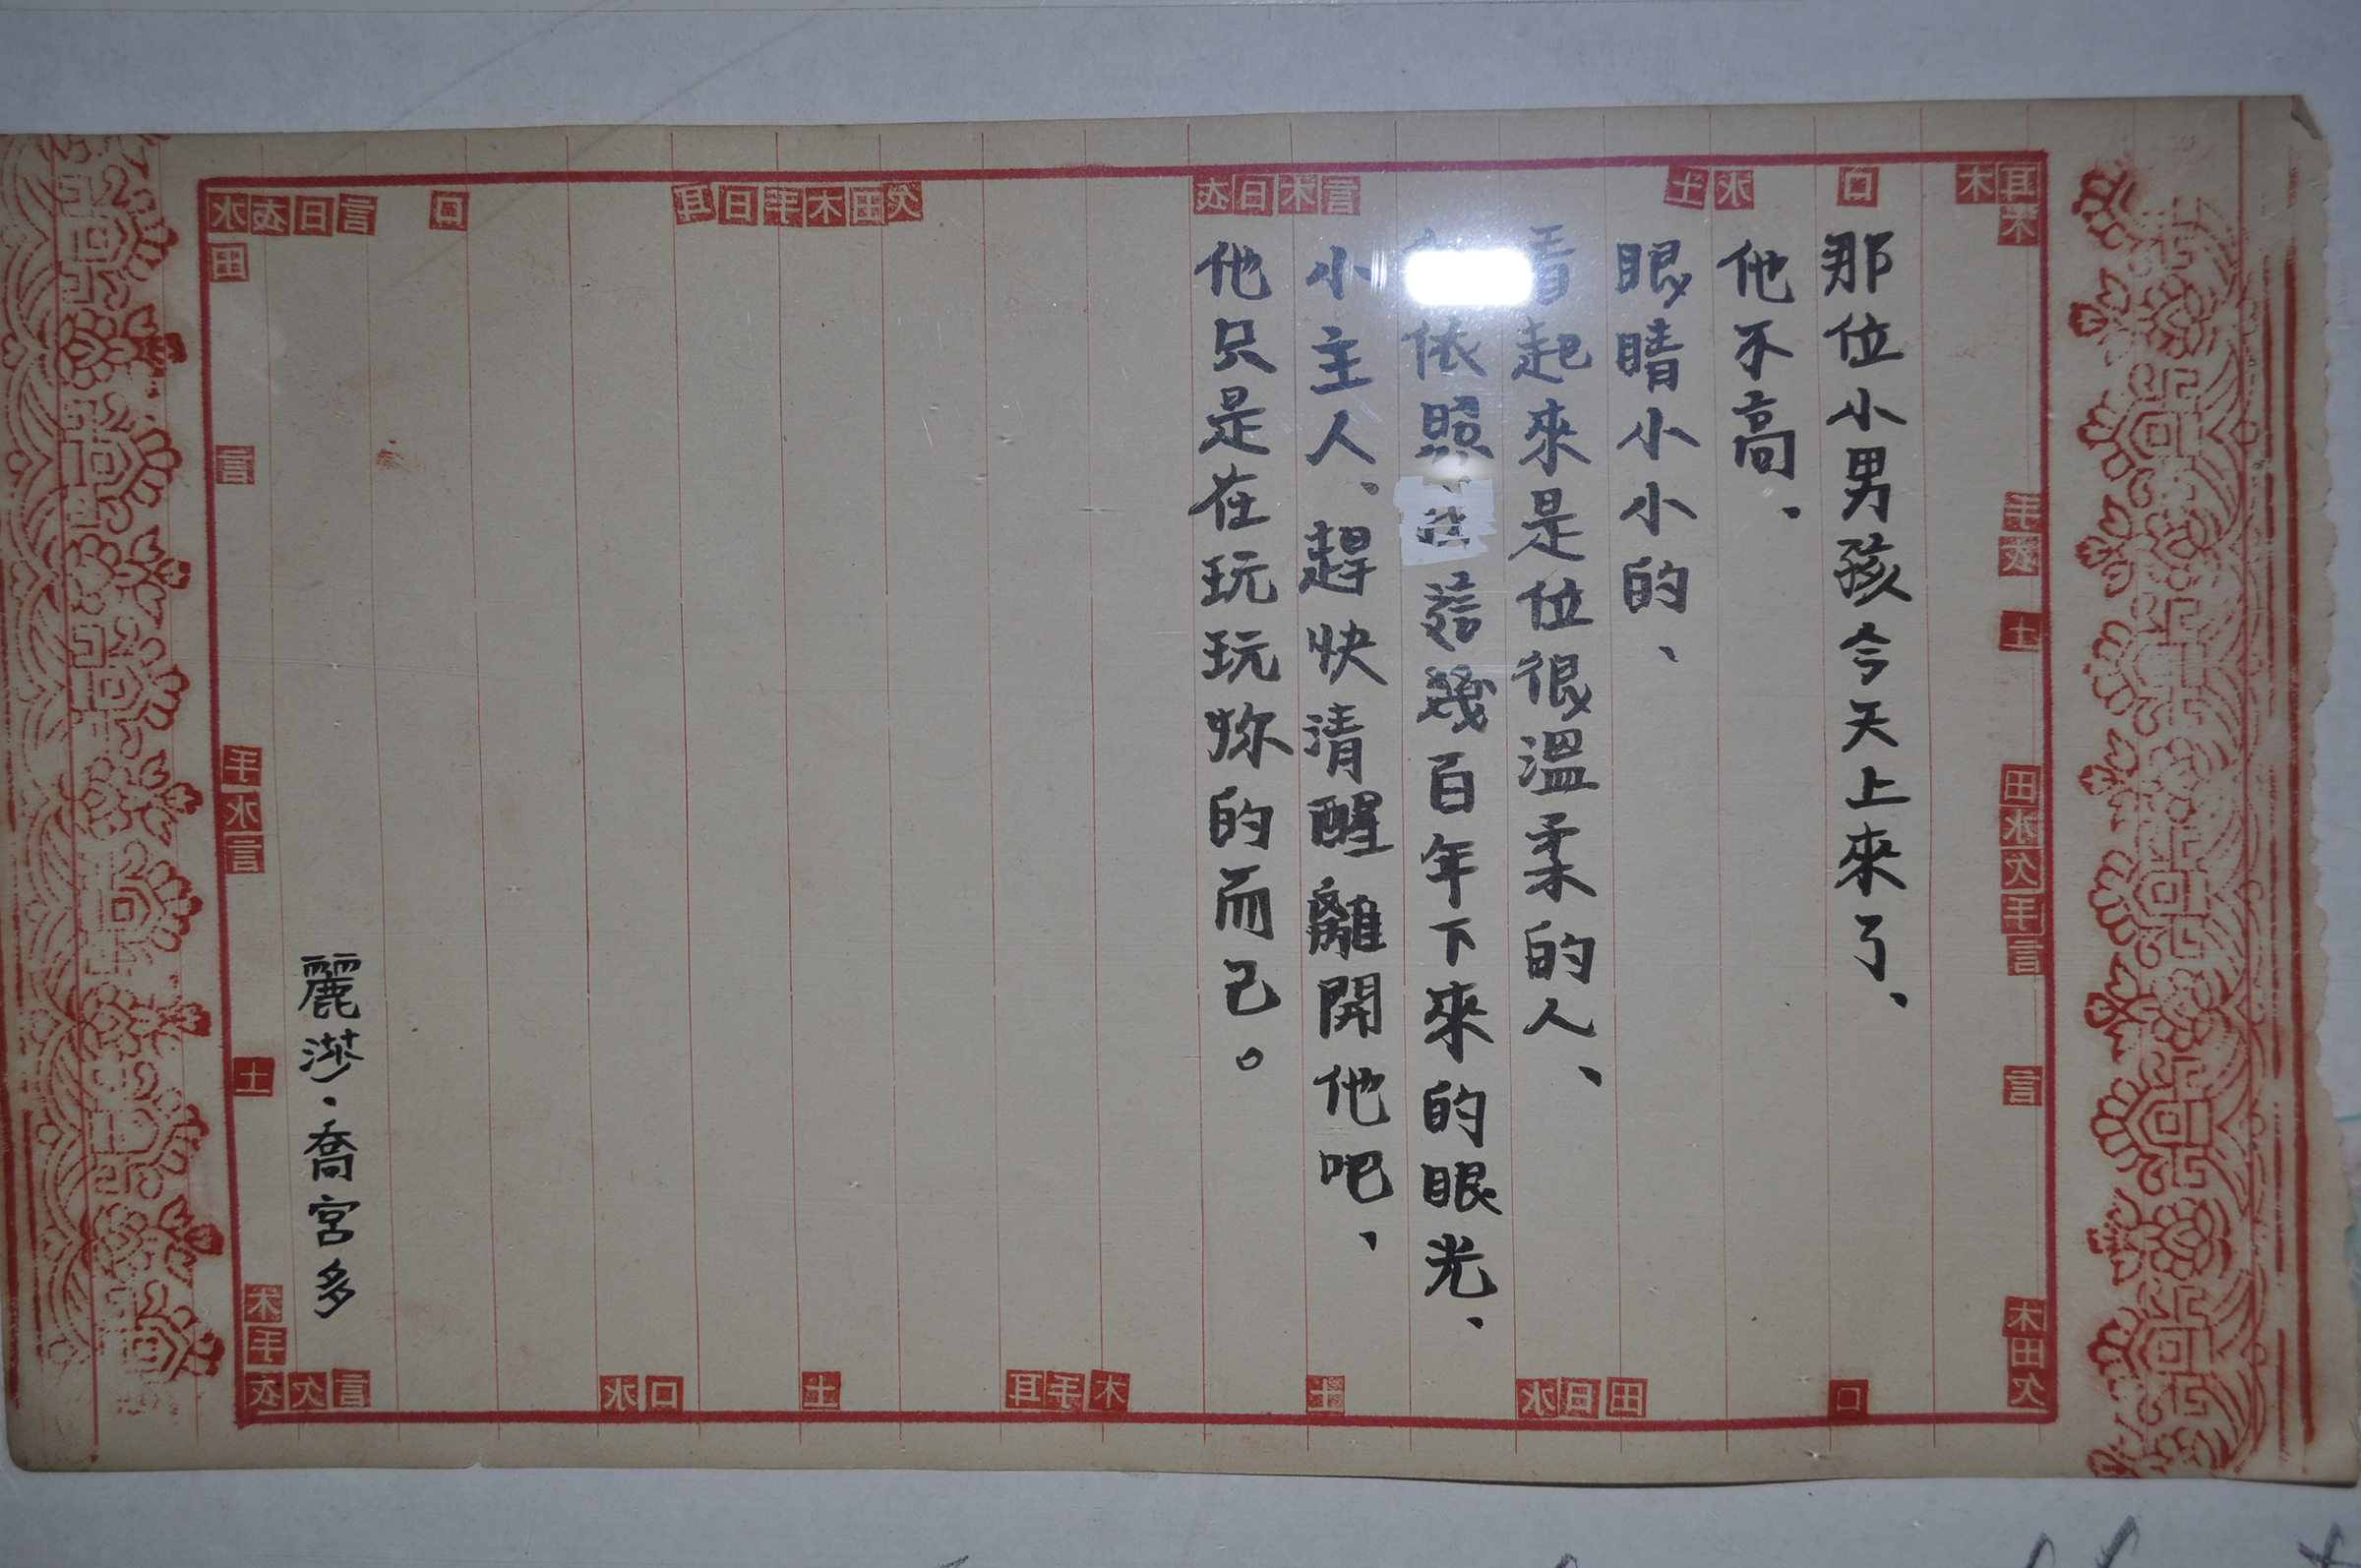 那位小男孩今天上來了、
他不高、
眼睛小小的、
看起來是位很溫柔的人、
依照 幾百年下來的眼光、
小主人、趕快清醒離開他吧、
他只是在玩玩妳的而已。
麗漭·喬宮多